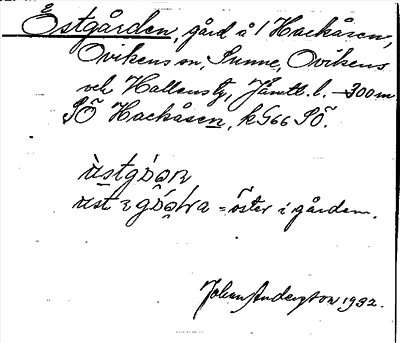 Östgården, gård å 1 Hackåsen,
Ovikens sn, Sunne, Ovikens
och Hallens tg, Jämtl. l. – 300 m
SÖ Hackåsen, kG66 SÖ.
= öster i gården.
Johan Anderson 1932.